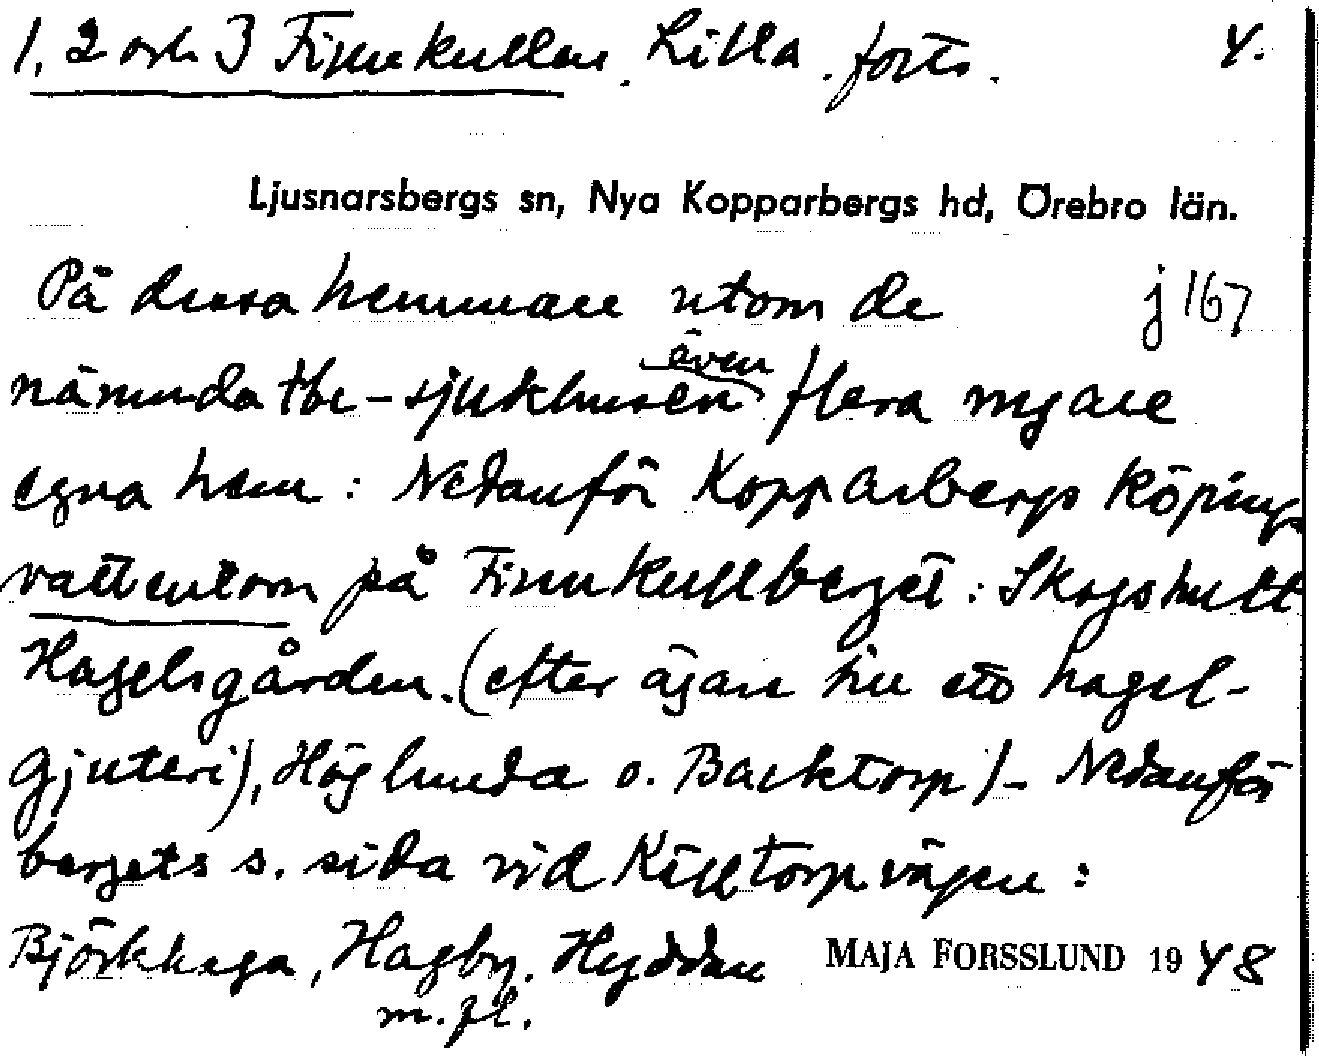 1, 2 och 3 Finnkullen. Lilla. forts. 4.
Ljusnarsbergs sn, Nya Kopparbergs hd, Örebro län.
På dessa hemman utom de j 167
nämnda tbc-sjukhusen även flera nyare
egna hem: Nedanför Kopparbergs köpings
vattentorn på Finnkullberget: Skogshult
Hagelsgården. (efter ägaren hagel-
gjuteri), Höglunda o. Backtorp)- Nedanför
bergets s. sida vid Källtorpvägen:
Björkhaga, Hagby. Hyddan MAJA FORSSLUND 1948
m.fl.